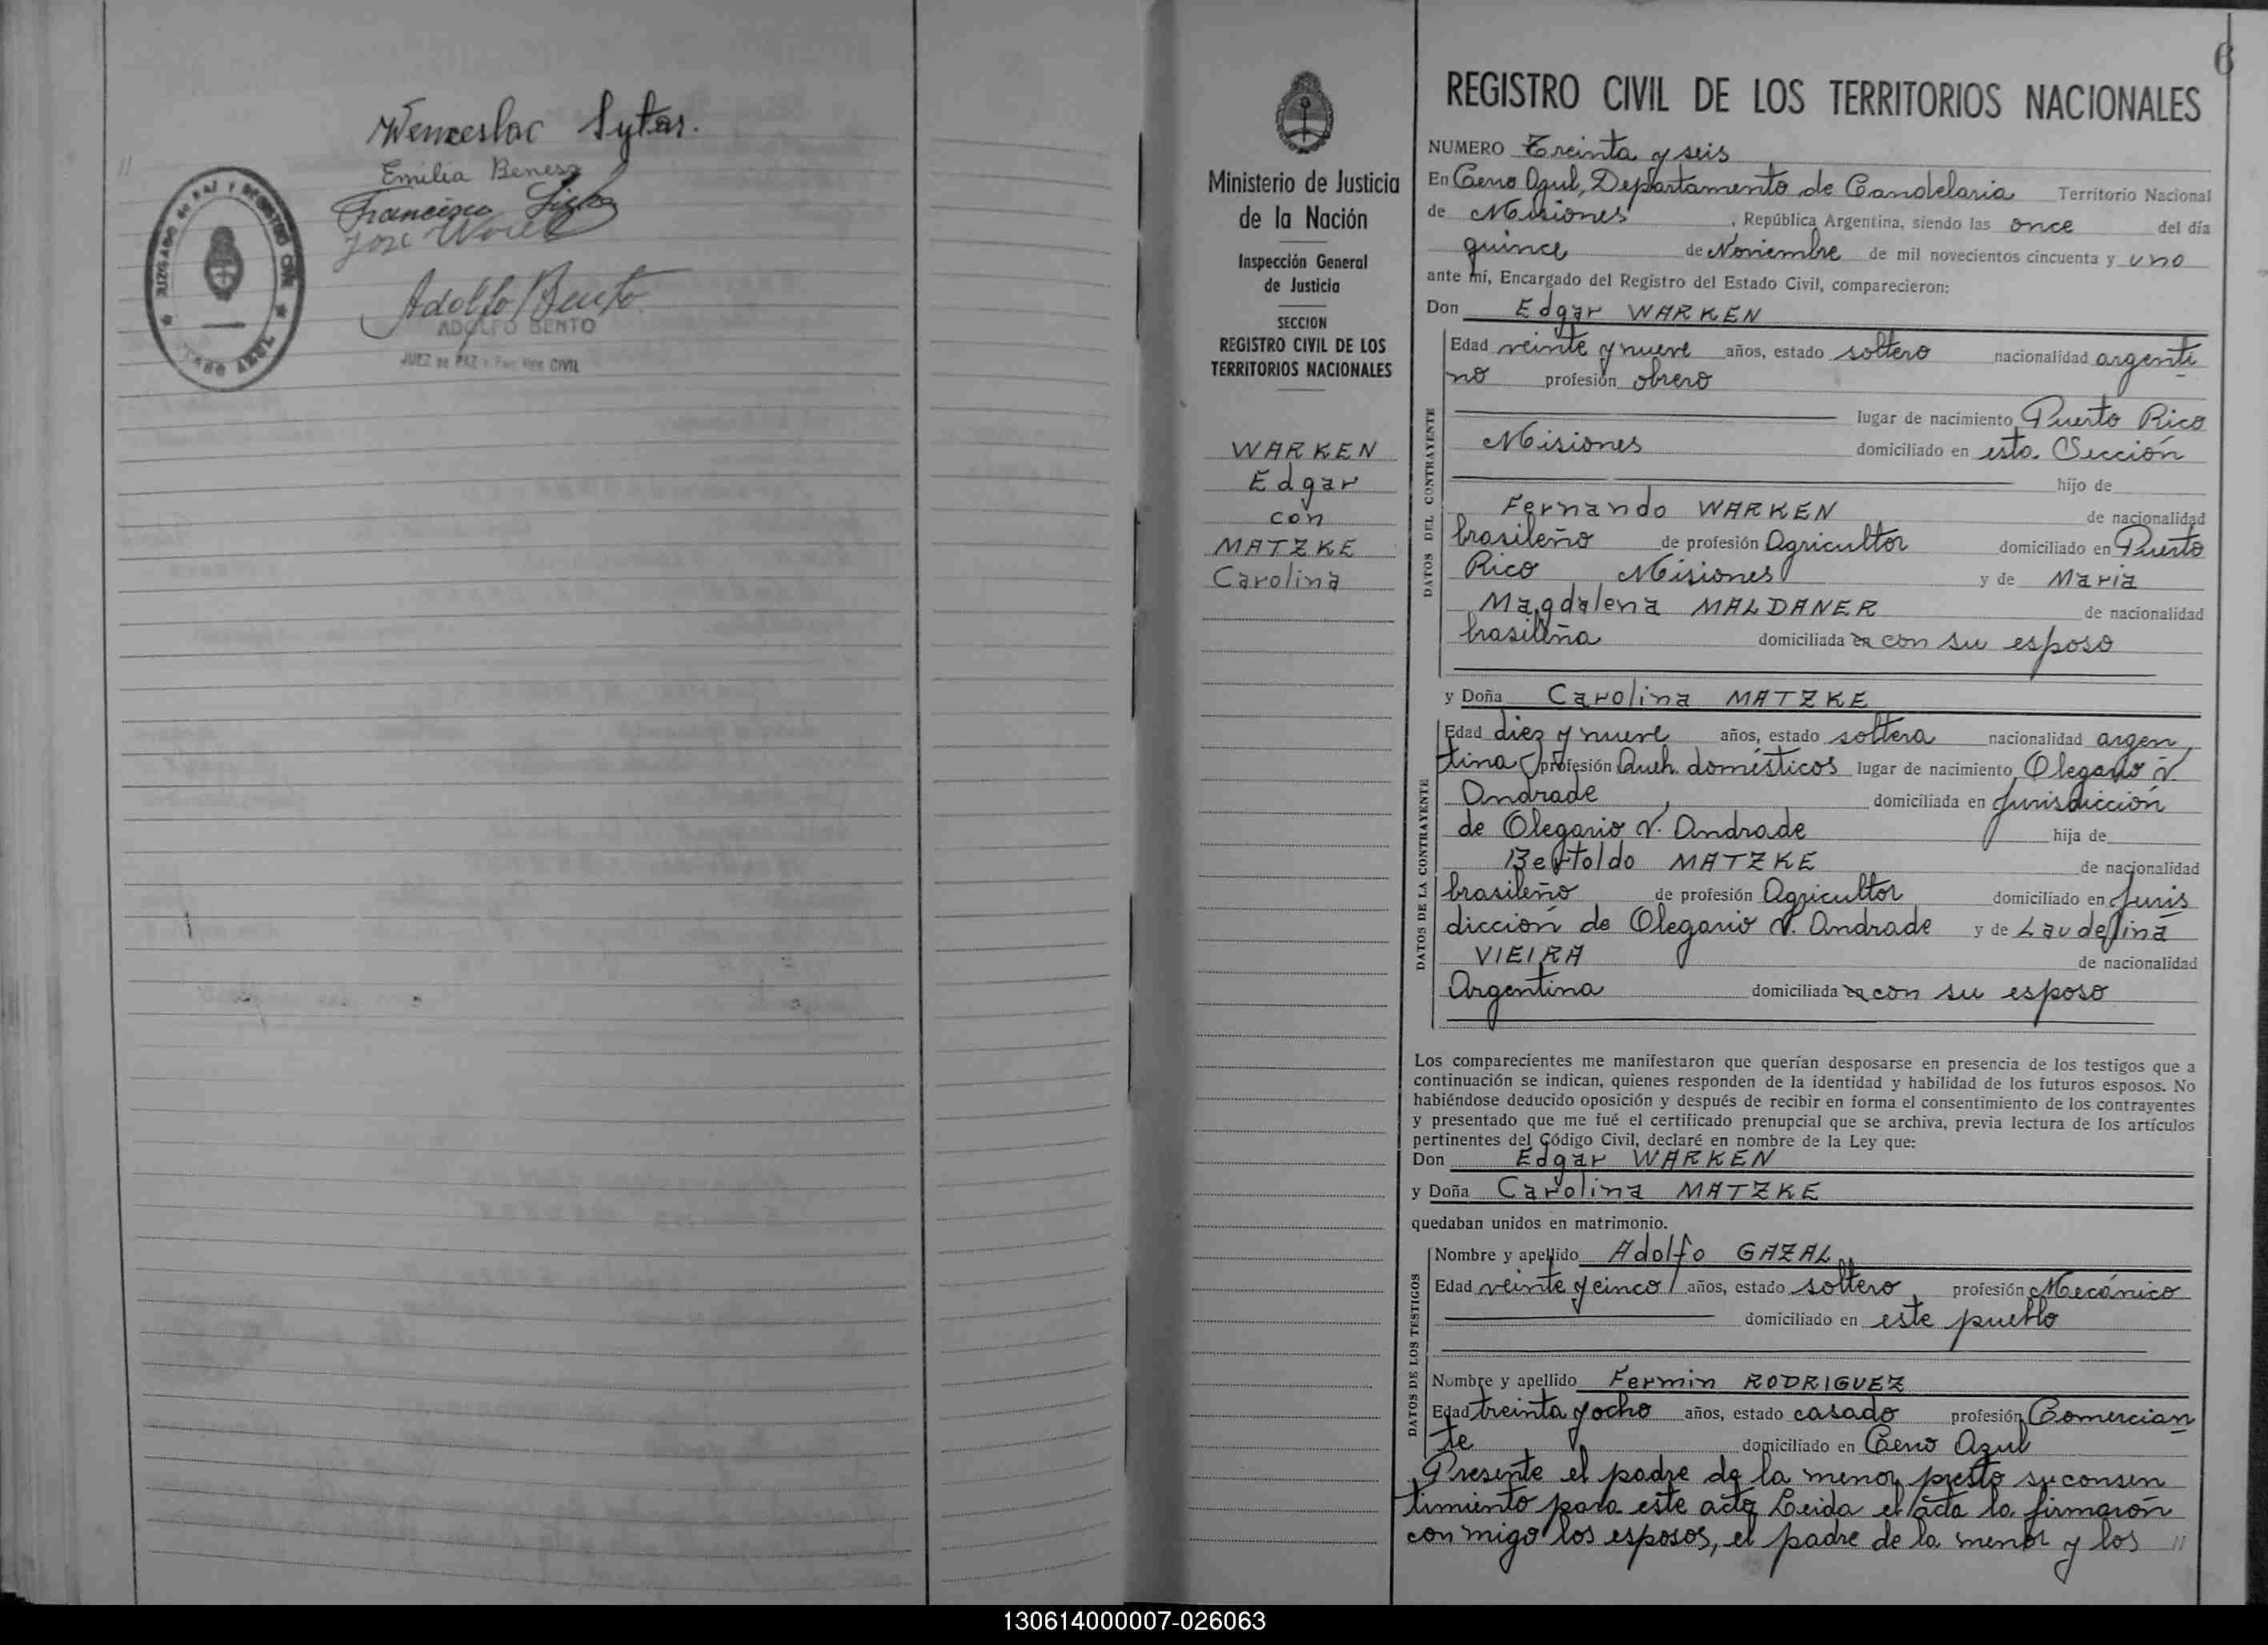 //
Wenceslac Sytar.
Emilia Benesz
Francisco
José
Adolfo Bento
ADOLFO BENTO
JUEZ DE PAZ Y Enc. Reg. CIVIL
JUZGADO de PAZ Y REGISTRO CIVIL
CERRO AZUL
6
Ministerio de Justicia
de la Nación
Inspección General
de Justicia
SECCION
REGISTRO CIVIL DE LOS
TERRITORIOS NACIONALES
WARKEN
Edgar
con
MATZKE
Carolina
REGISTRO CIVIL DE LOS TERRITORIOS NACIONALES
NUMERO Treinta y seis
En Cerro Azul, Departamento de Candelaria Territorio Nacional
de Misiones, República Argentina, siendo las once del día
quince de Noviembre de mil novecientos cincuenta y uno
ante mí, Encargado del Registro del Estado Civil, comparecieron:
Don Edgar WARKEN
DATOS DEL CONTRAYENTE
Edad veinte y nueve años, estado soltero nacionalidad argenti
no profesión obrero
lugar de nacimiento Puerto Rico
Misiones domiciliado en esta Sección
hijo de
Fernando WARKEN de nacionalidad
brasileño de profesión Agricultor domiciliado en Puerto
Rico Misiones y de Maria
Magdalena MALDANER de nacionalidad
brasileña domiciliada en con su esposo
y Doña Carolina MATZKE
DATOS DE LA CONTRAYENTE
Edad diez y nueve años, estado soltera nacionalidad argen
tina profesión Queh. domésticos lugar de nacimiento Olegario V.
Andrade domiciliada en Jurisdicción
de Olegario V. Andrade hija de
Bertoldo MATZKE de nacionalidad
brasileño de profesión Agricultor domiciliado en Juris
dicción de Olegario V. Andrade y de Laudelina
VIEIRA de nacionalidad
Argentina domiciliada en con su esposo
Los comparecientes me manifestaron que querían desposarse en presencia de los testigos que a
continuación se indican, quienes responden de la identidad y habilidad de los futuros esposos. No
habiéndose deducido oposición y después de recibir en forma el consentimiento de los contrayentes
y presentado que me fué el certificado prenupcial que se archiva, previa lectura de los artículos
pertinentes del Código Civil, declaré en nombre de la Ley que:
Don Edgar WARKEN
y Doña Carolina MATZKE
quedaban unidos en matrimonio.
DATOS DE LOS TESTIGOS
Nombre y apellido Adolfo GAZAL
Edad veinte y cinco años, estado soltero profesión Mecánico
domiciliado en este pueblo
Nombre y apellido Fermin RODRIGUEZ
Edad treinta y ocho años, estado casado profesión Comercian
te domiciliado en Cerro Azul
Presente el padre de la menor presto su consen
timiento para este acto Leida el acta la firmaron
conmigo los esposos, el padre de la menor y los //
130614000007-026063